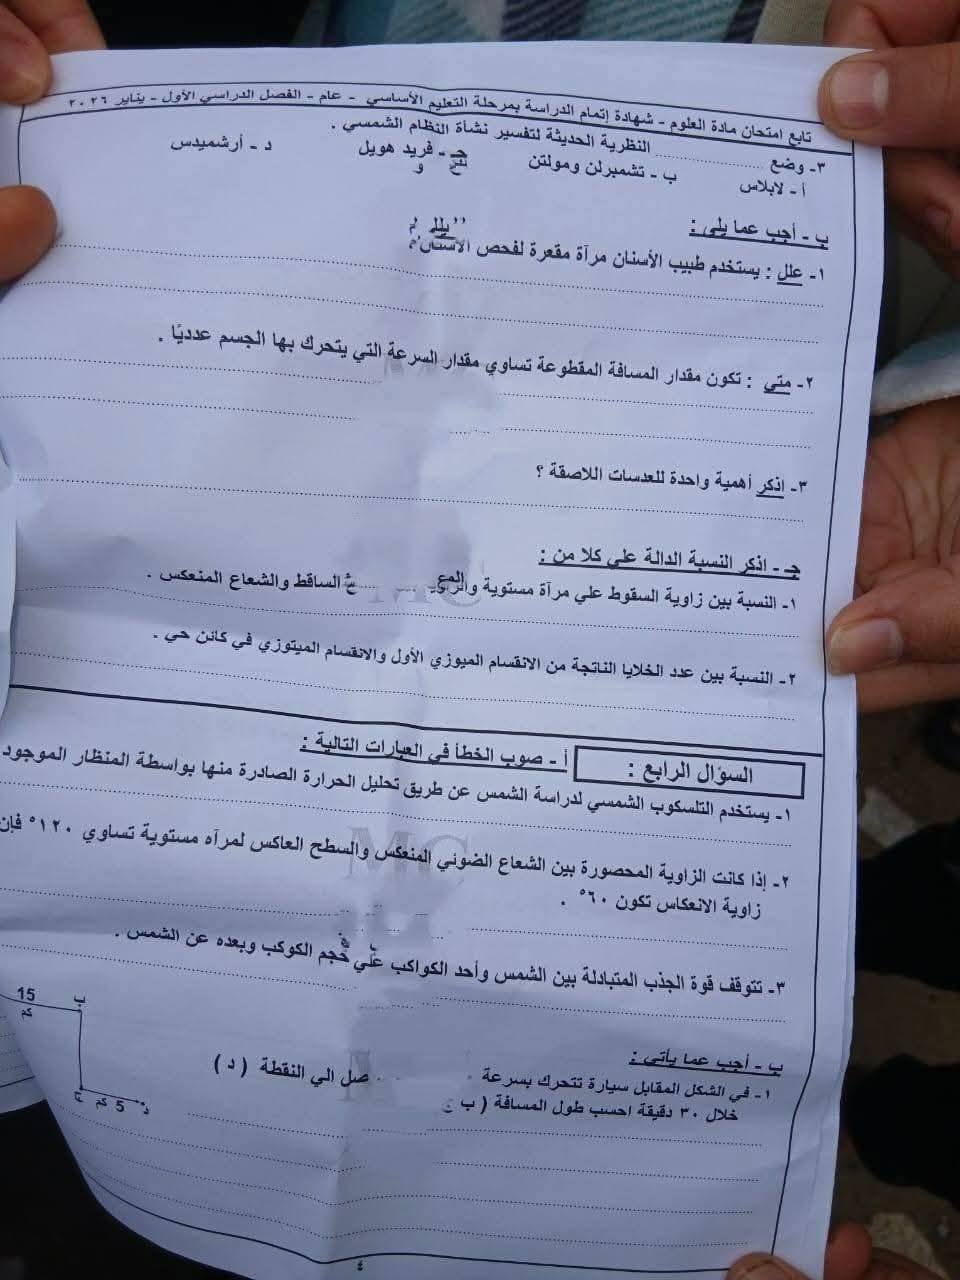 تابع امتحان مادة العلوم - شهادة إتمام الدراسة بمرحلة التعليم الأساسي - عام - الفصل الدراسي الأول - يناير ٢٠٢٦
٣- وضع ............ النظرية الحديثة لتفسير نشأة النظام الشمسي .
أ - لابلاس ب - تشمبرلن ومولتن جـ - فريد هويل د - أرشميدس
ب - أجب عما يلي :
١- علل : يستخدم طبيب الأسنان مرآة مقعرة لفحص الأسنان
٢- متي : تكون مقدار المسافة المقطوعة تساوي مقدار السرعة التي يتحرك بها الجسم عدديًا .
٣- اذكر أهمية واحدة للعدسات اللاصقة ؟
جـ - اذكر النسبة الدالة علي كلا من :
١- النسبة بين زاوية السقوط علي مرآة مستوية الساقط والشعاع المنعكس .
٢- النسبة بين عدد الخلايا الناتجة من الانقسام الميوزي الأول والانقسام الميتوزي في كائن حي .
السؤال الرابع :
أ - صوب الخطأ في العبارات التالية :
١- يستخدم التلسكوب الشمسي لدراسة الشمس عن طريق تحليل الحرارة الصادرة منها بواسطة المنظار الموجود
٢- إذا كانت الزاوية المحصورة بين الشعاع الضوئي المنعكس والسطح العاكس لمرآه مستوية تساوي ١٢٠° فإن
زاوية الانعكاس تكون ٦٠° .
٣- تتوقف قوة الجذب المتبادلة بين الشمس وأحد الكواكب علي حجم الكوكب وبعده عن الشمس .
ب - أجب عما يأتي :
١- في الشكل المقابل سيارة تتحرك بسرعة صل الي النقطة ( د )
خلال ٣٠ دقيقة احسب طول المسافة ( ب ج
15
كم
ب
ج
5 كم
د
MC
٤